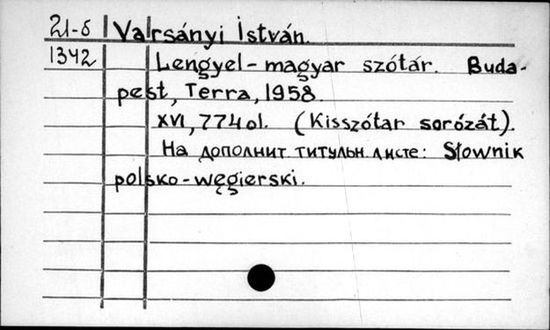 21-б Varsányi István.
1342 Lengyel-magyar szótár. Buda-
pest, Terra, 1958.
XVI, 774 ol. (Kisszótar sorózát).
На дополнит титульн листе: Słownik
polsko-węgierski.